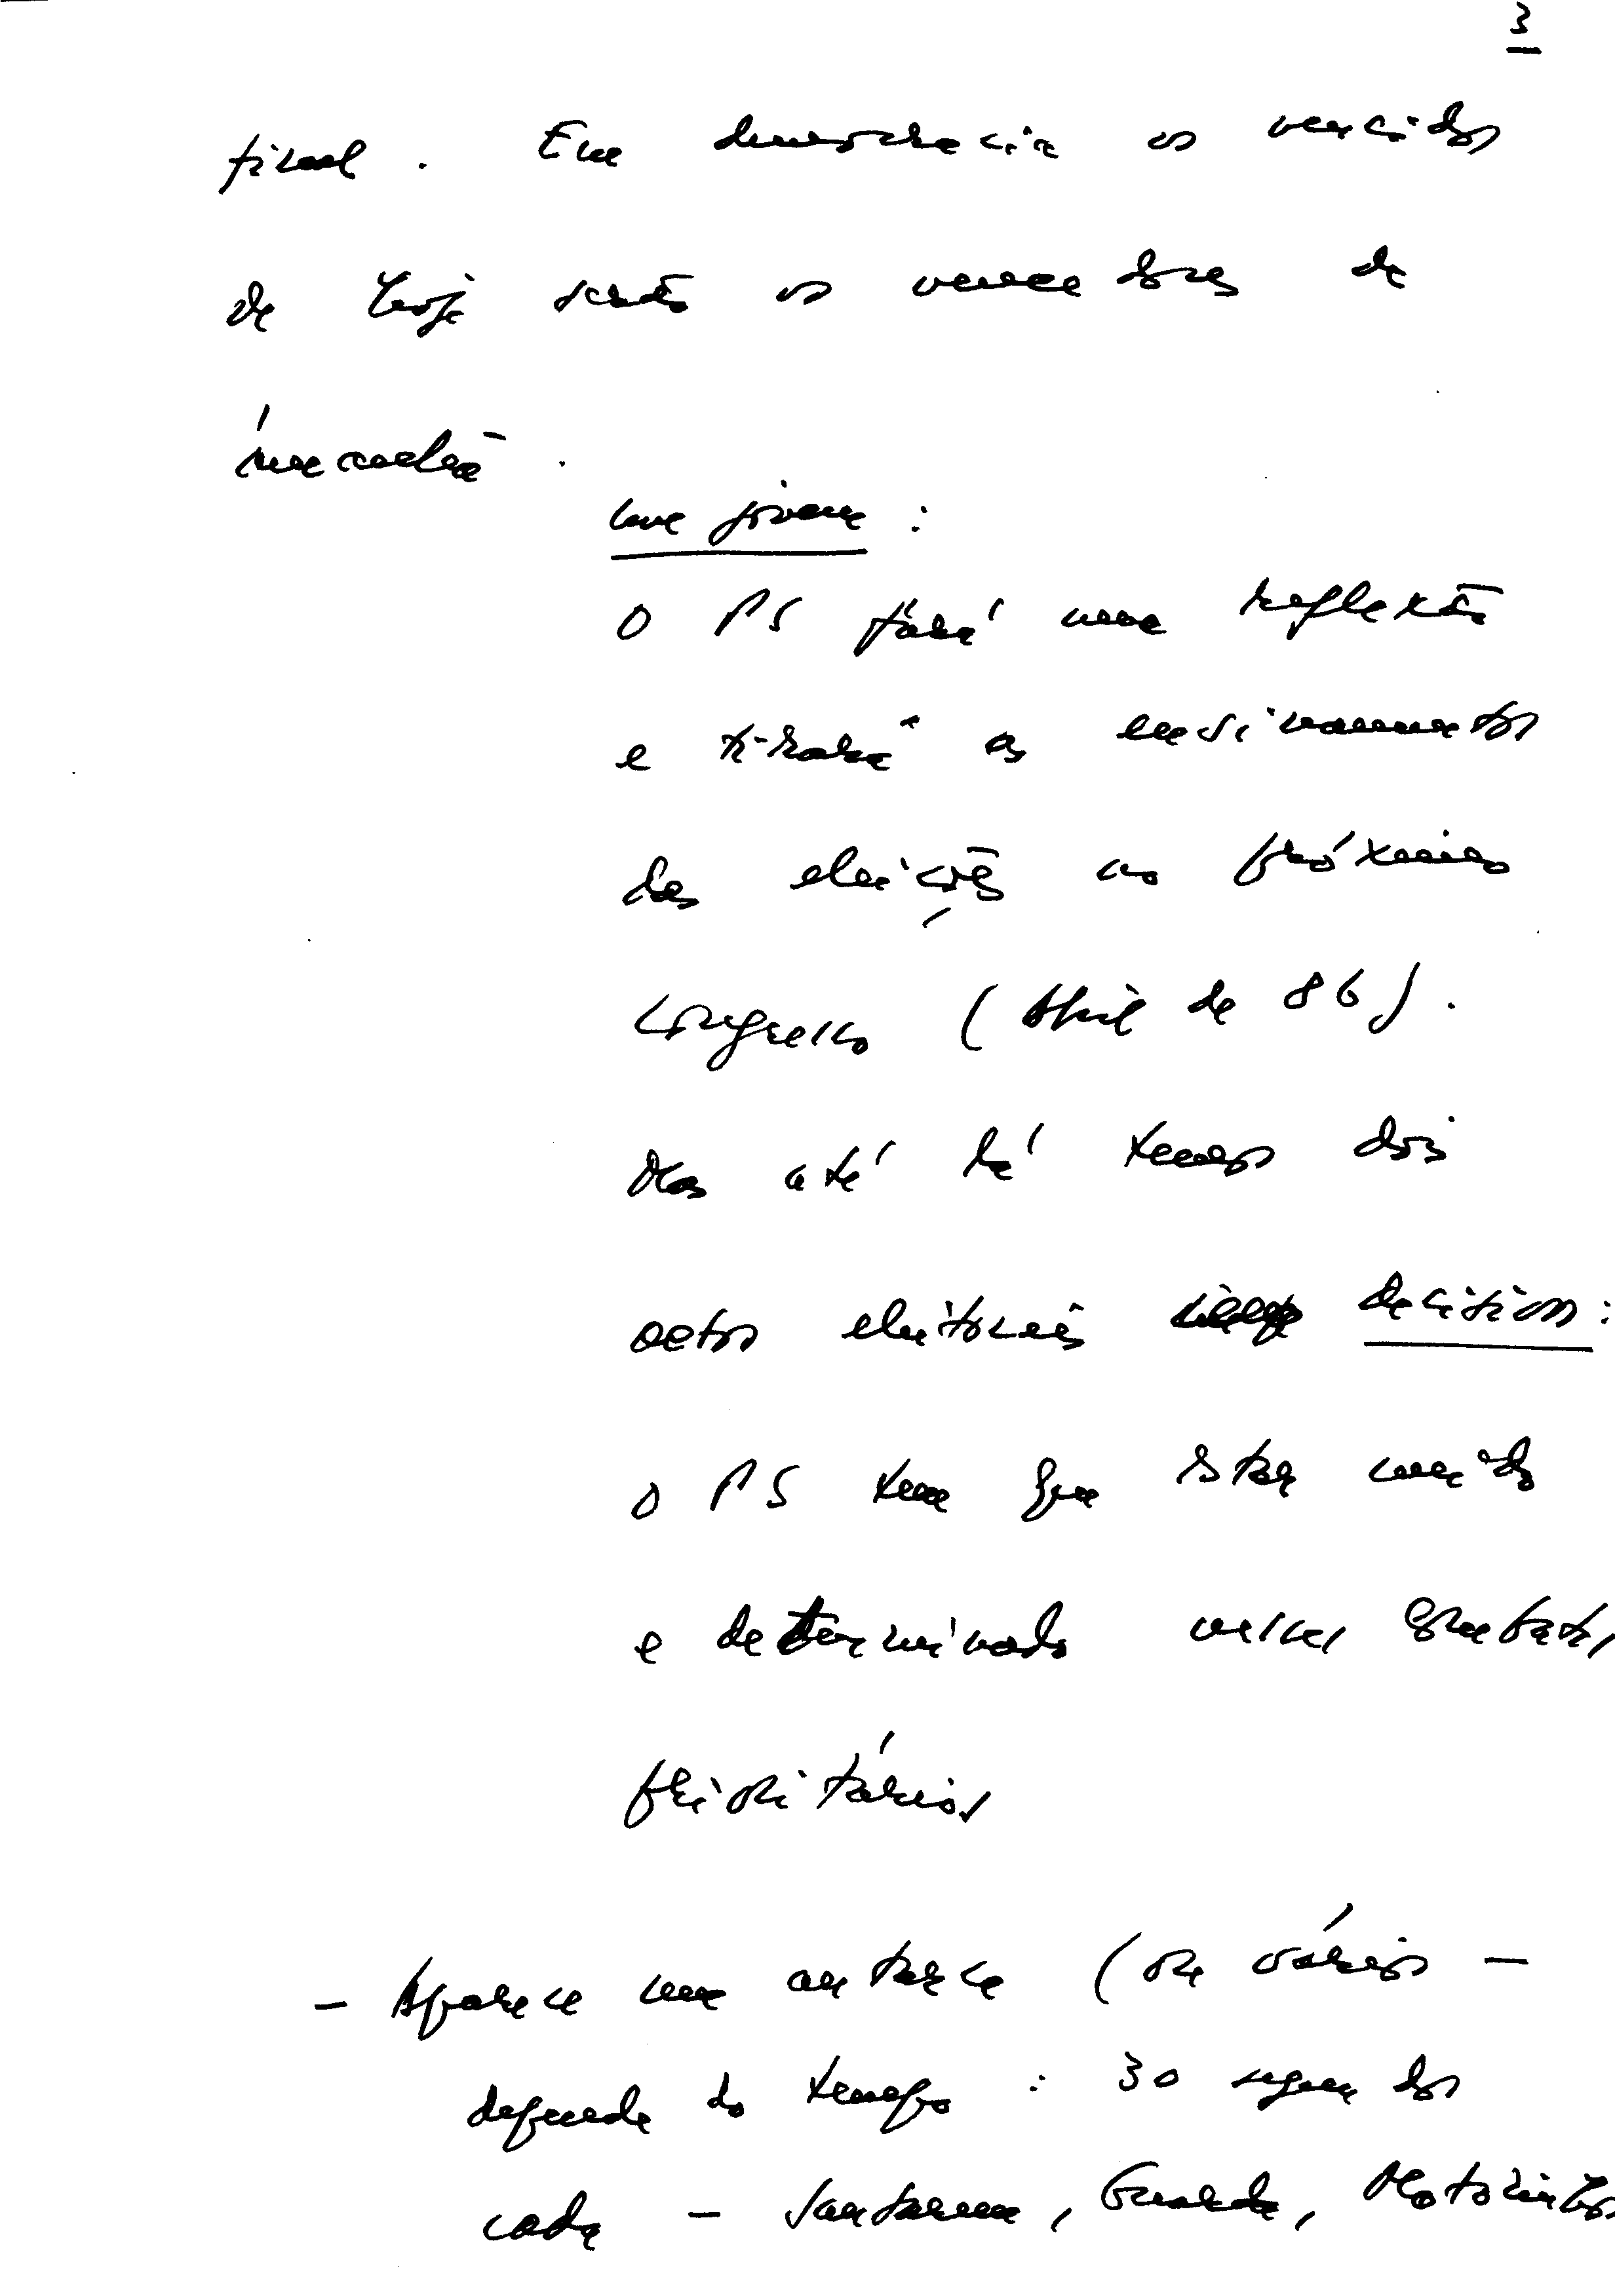 3
final. Em democracia os vencidos
de hoje serão os vencedores de
amanhã.
um jovem:
O PS fará uma reflexão
e tirará os ensinamentos
das eleições no próximo
Congresso (Abril de 86).
Mas até lá temos dois
actos eleitorais decisivos:
o PS tem que estar unido
e determinado
prioritários
- Aparece um autarca (ou vários -
depende do tempo: 30 segundos
cada - Santarém, Guarda, Matosinhos